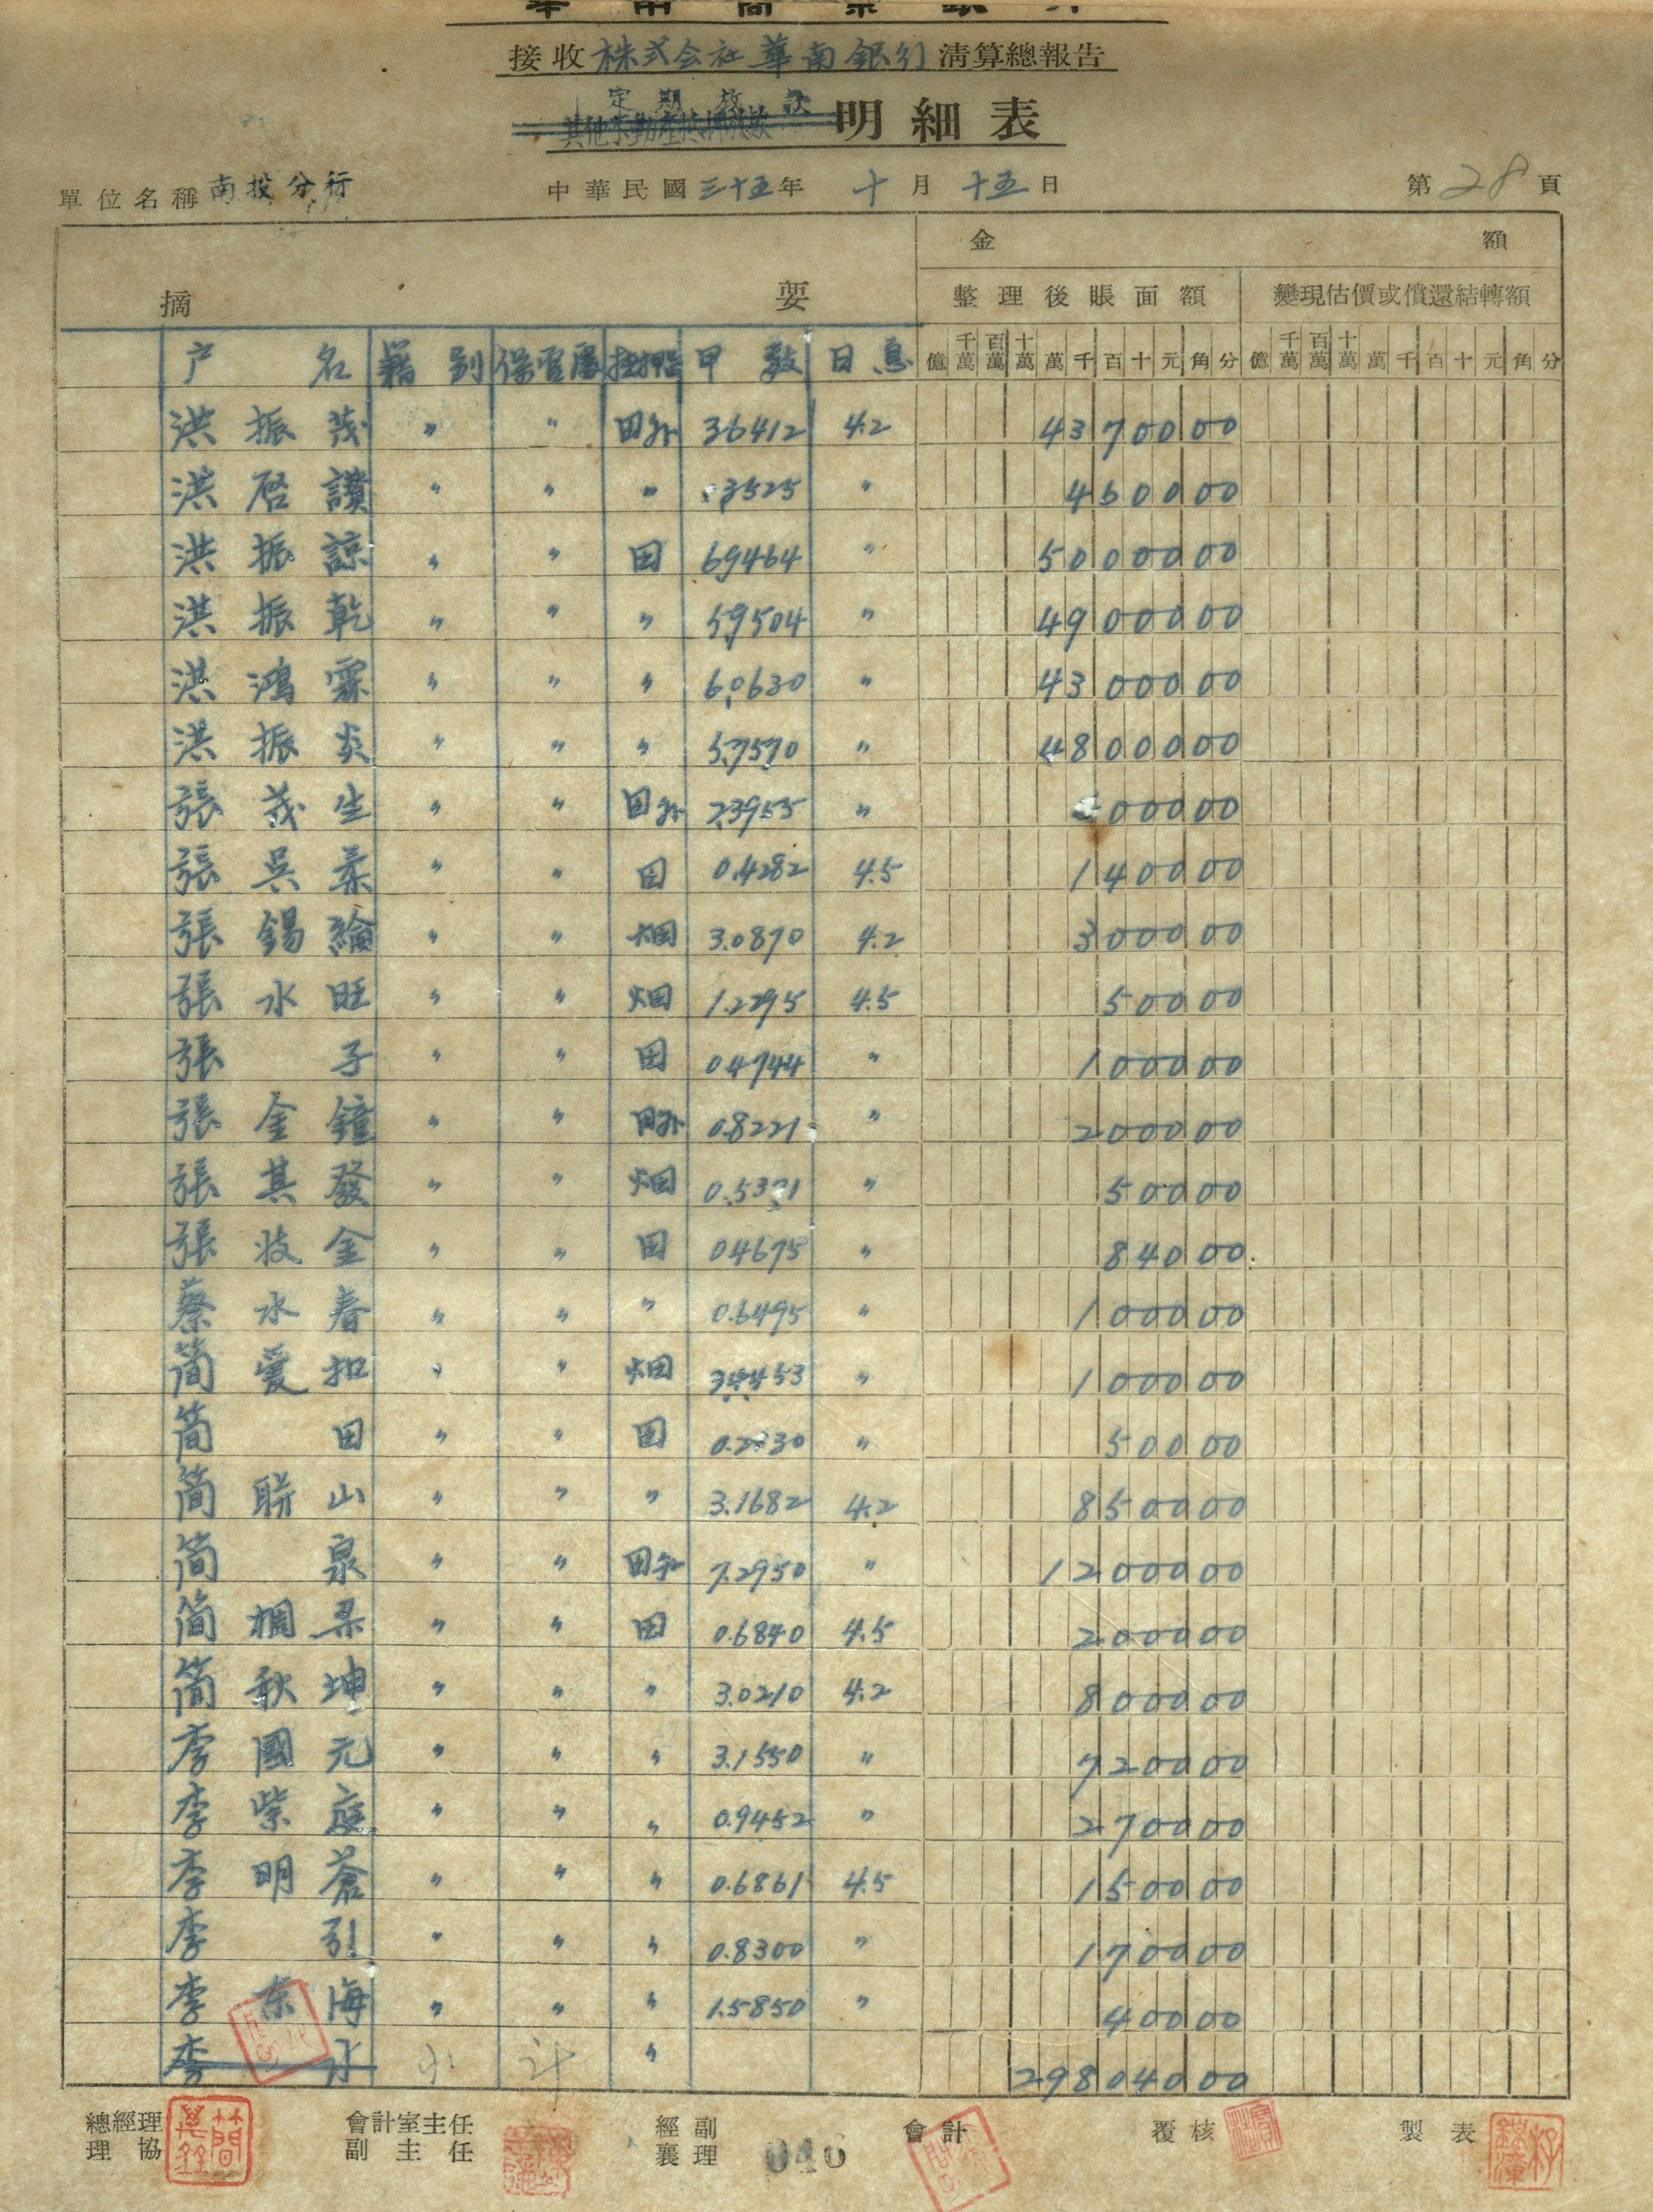 接收株式会社華南銀行清算總報告
定期放款
明細表
單位名稱南投分行 中華民國三十五年十月十五日 第28頁
金額
摘要 整理後賬面額 變現估價或償還結轉額
户名 籍別 保管層 抵押品 甲数 日息 億 千萬 百萬 十萬 萬 千 百 十 元 角 分 億 千萬 百萬 十萬 萬 千 百 十 元 角 分
洪振茂 〃 〃 田外 3.6412 4.2 4370000
洪啓讚 〃 〃 〃 .3525 〃 460000
洪振諒 〃 〃 田 6.9464 〃 5000000
洪振乾 〃 〃 〃 5.9504 〃 4900000
洪鴻霖 〃 〃 〃 6.0630 〃 4300000
洪振炎 〃 〃 〃 5.7570 〃 4800000
張茂生 〃 〃 田外 2.3955 〃 00000
張呉柔 〃 〃 田 0.4282 4.5 140000
張錫綸 〃 〃 畑 3.0870 4.2 300000
張水旺 〃 〃 畑 1.2295 4.5 50000
張子 〃 〃 田 0.4744 〃 100000
張金鐘 〃 〃 田外 0.8221 〃 200000
張其發 〃 〃 畑 0.5371 〃 50000
張妝金 〃 〃 田 0.4675 〃 84000
蔡水春 〃 〃 〃 0.6495 〃 100000
简愛扣 〃 〃 畑 3.4453 〃 100000
简田 〃 〃 田 0.2830 〃 50000
简聯山 〃 〃 〃 3.1682 4.2 850000
简泉 〃 〃 田外 7.2950 〃 1200000
简棡栗 〃 〃 田 0.6840 4.5 200000
简秋坤 〃 〃 〃 3.0210 4.2 800000
李國元 〃 〃 〃 3.1550 〃 720000
李紫庭 〃 〃 〃 0.9452 〃 270000
李明蒼 〃 〃 〃 0.6861 4.5 150000
李引 〃 〃 〃 0.8300 〃 170000
李东海 〃 〃 〃 1.5850 〃 40000
李水 小計 〃 29804000
總經理 會計室主任 經副 會計 覆核 製表
理協 副主任 襄理 046